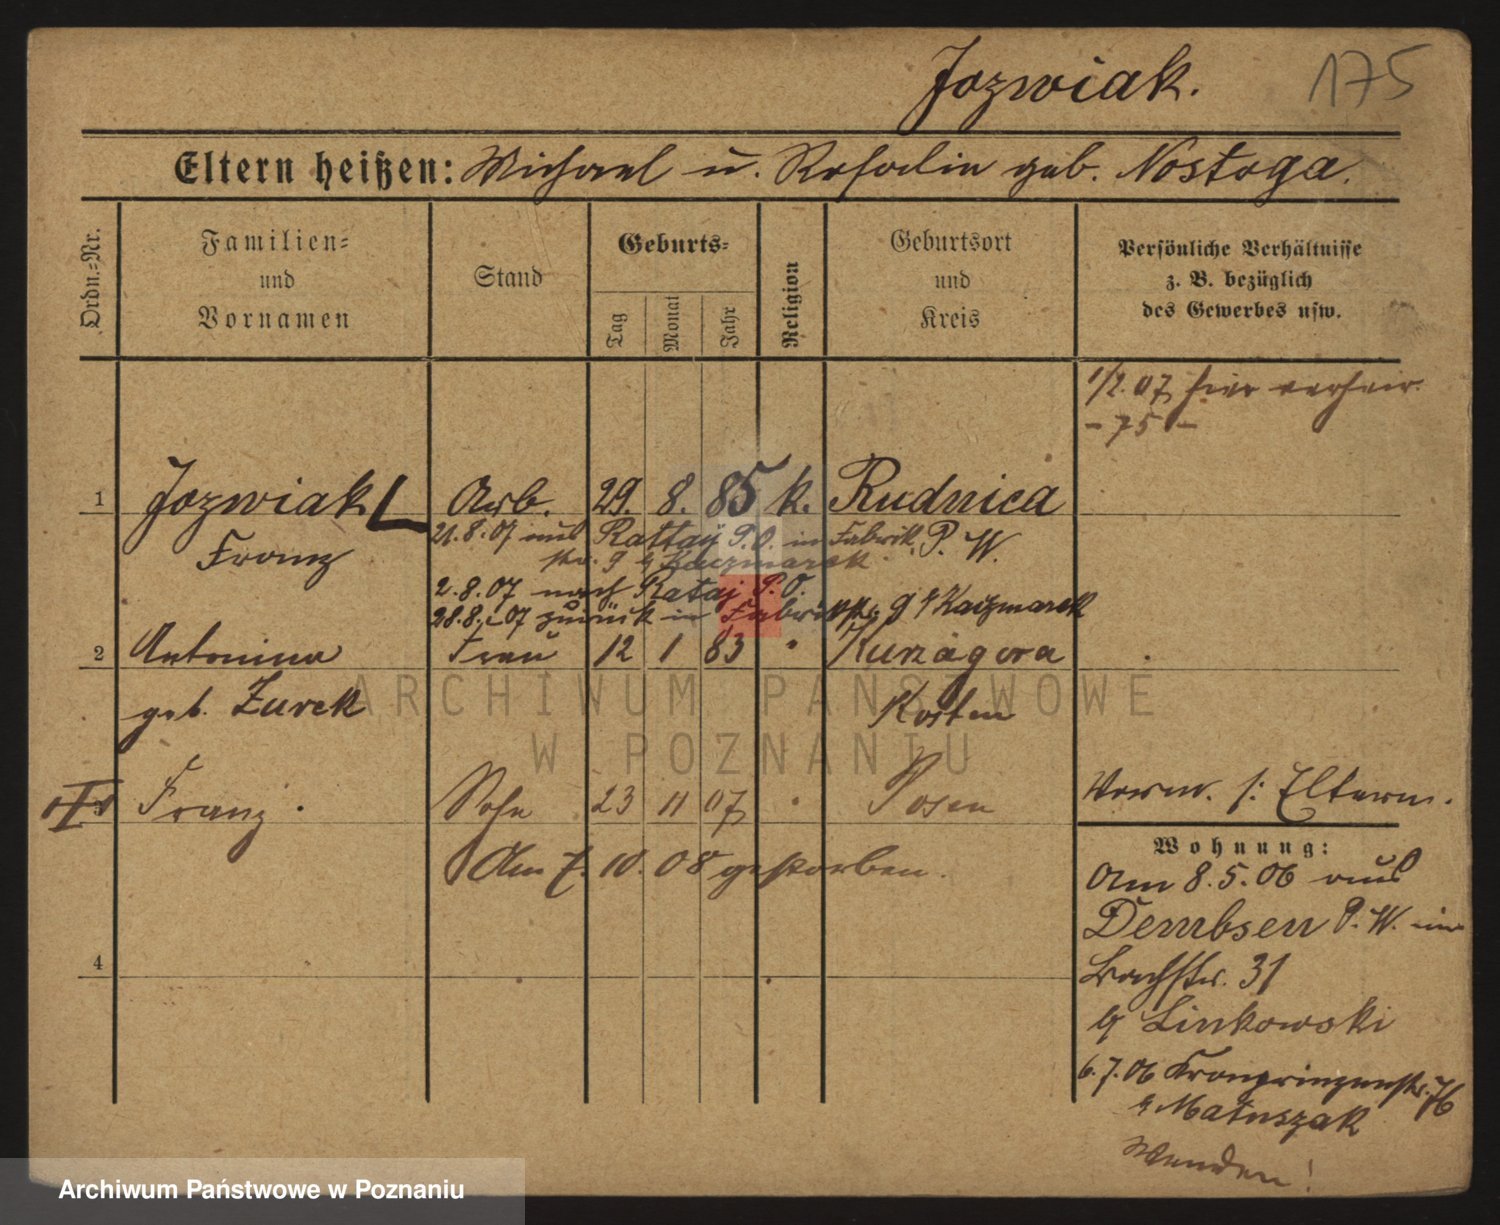 Jozwiak.
175
Eltern heißen: Michael u. Rosalie geb. Nostoga.
Ordn.=Nr.
Familien=
und
Vornamen
Stand
Geburts=
Tag
Monat
Jahr
Religion
Geburtsort
und
Kreis
Persönliche Verhältnisse
z. B. bezüglich
des Gewerbes usw.
1/2.07 hier verheir.
- 75 -
1 Jozwiak Arb. 29. 8. 85 k. Rudnica
Franz
21.8.07 aus Rattay P.O. in Fabrik P. W.
str. 9 b Kaczmarek
2.8.07 nach Rataj P.O.
28.8.07 zurück in Fabrikstr. 9 b Kaczmarek
2 Antonina Frau 12 1 83 " Kurzagora
geb. Zurek Kosten
3 Franz Sohn 23 11 07 " Posen
Am 7. 10. 08 gestorben.
Verm. s: Eltern.
Wohnung:
Am 8.5.06 aus
Dembsen P. W. in
Bachstr. 31
b Linkowski
6.7.06 Kronprinzenstr. 76
b Matuszak
Wenden!
4
ARCHIWUM PAŃSTWOWE
W POZNANIU
Archiwum Państwowe w Poznaniu